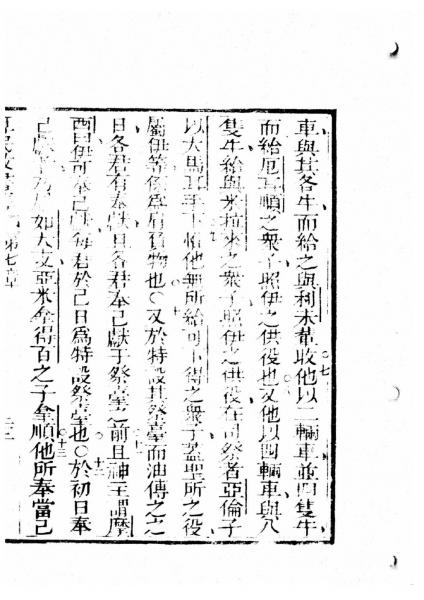 車與其各牛而給之與利未輩收他以二輛車並四隻牛
而給厄耳順之衆子照伊之供役也又他以四輛車與八
隻牛給與米拉來之衆子照伊之供役在司祭者亞倫子
以大馬耳手下惟他無所給可下得之衆子蓋聖所之役
屬伊等係爲肩負物也〇又於特設其祭臺而油傅之之
日各君有奉獻且各君奉己獻于祭臺之前且神主謂摩
西曰伊可奉己獻每君於己日爲特設祭臺也〇於初日奉
己獻者爲如大支亞米拿得百之子拿順他所奉當己
第七章